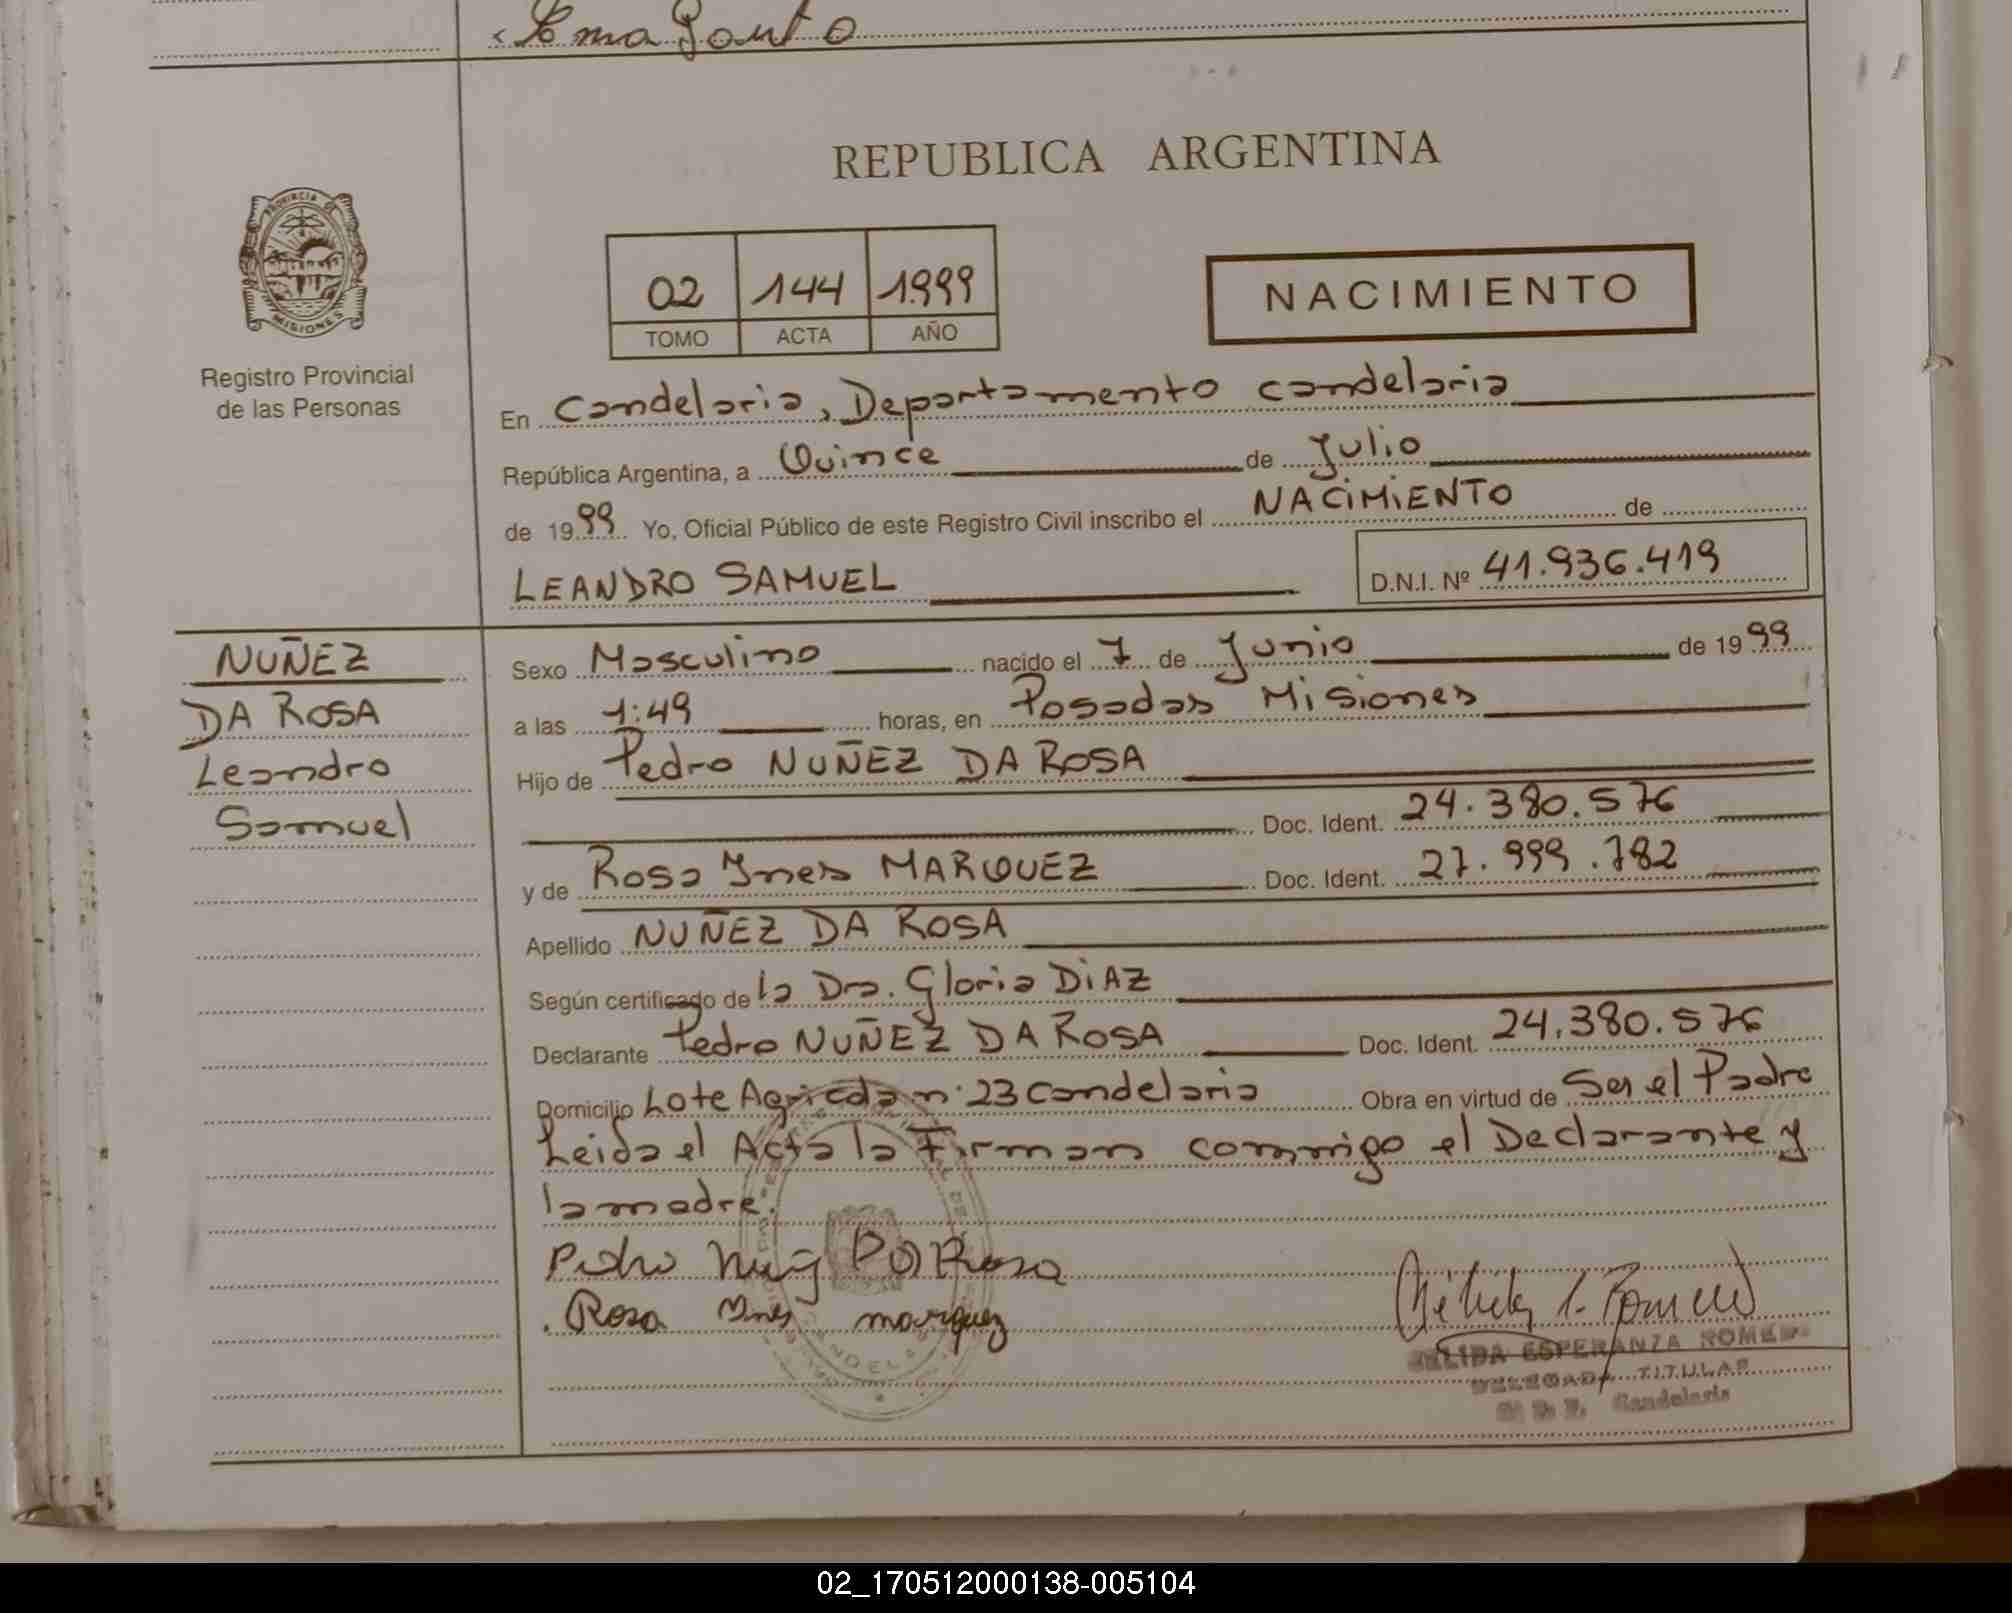 REPUBLICA ARGENTINA
PROVINCIA DE
MISIONES
Registro Provincial
de las Personas
02 144 1.999
TOMO ACTA AÑO
NACIMIENTO
En Candelaria, Departamento candelaria
República Argentina, a Quince de Julio
de 1999 Yo, Oficial Público de este Registro Civil inscribo el NACIMIENTO de
LEANDRO SAMUEL D.N.I. Nº 41.936.419
NUÑEZ
DA ROSA
Leandro
Samuel
Sexo Masculino nacido el 7 de Junio de 1999
a las 1:49 horas, en Posadas Misiones
Hijo de Pedro NUÑEZ DA ROSA
Doc. Ident. 24.380.576
y de Rosa Ines MARQUEZ Doc. Ident. 27.999.782
Apellido NUÑEZ DA ROSA
Según certificado de la Dra. Gloria DIAZ
Declarante Pedro NUÑEZ DA ROSA Doc. Ident. 24.380.576
Domicilio Lote Agricola n° 23 Candelaria Obra en virtud de Ser el Padre
Leida el Acta la Firman conmigo el Declarante y
la madre.
Pedro DA Rosa
Rosa Ines marquez
NELIDA ESPERANZA ROMERO
DELEGADA TITULAR
Candelaria
02_170512000138-005104